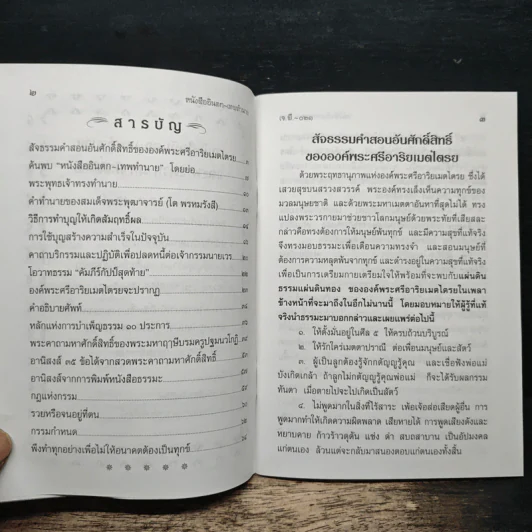 ๒
หนังสืออินตก-เทพทำนาย
สารบัญ
สัจธรรมคำสอนอันศักดิ์สิทธิ์ขององค์พระศรีอาริยเมตไตรย
ค้นพบ "หนังสืออินตก-เทพทำนาย" โดยย่อ
พระพุทธเจ้าทรงทำนาย
คำทำนายของสมเด็จพระพุฒาจารย์ (โต พรหมรังสี)
วิธีการทำบุญให้เกิดสัมฤทธิ์ผล
การใช้บุญสร้างความสำเร็จในปัจจุบัน
คาถาบริกรรมและปฏิบัติเพื่อปลดหนี้ต่อเจ้ากรรมนายเวร
โอวาทธรรม "คัมภีร์กัปป์สุดท้าย"
องค์พระศรีอาริยเมตไตรยจะปรากฏ
คำอธิบายศัพท์
หลักแห่งการบำเพ็ญธรรม ๑๐ ประการ
พระคาถามหาศักดิ์สิทธิ์ของพระมหาฤาษีบรมครูปฐมนวโกฏิ
อานิสงส์ ๓๕ ข้อได้จากสวดพระคาถามหาศักดิ์สิทธิ์
อานิสงส์จากการพิมพ์หนังสือธรรมะ
กฎแห่งกรรม
รวยหรือจนอยู่ที่ตน
กรรมกำหนด
พึงทำทุกอย่างเพื่อไม่ให้อนาคตต้องเป็นทุกข์
๓
สัจธรรมคำสอนอันศักดิ์สิทธิ์
ขององค์พระศรีอาริยเมตไตรย
ด้วยพระฤทธานุภาพแห่งองค์พระศรีอาริยเมตไตรย ซึ่งได้
เสวยสุขบนสรวงสวรรค์ พระองค์ทรงเล็งเห็นความทุกข์ของ
มวลมนุษยชาติ และด้วยพระมหาเมตตาอันหาที่สุดไม่ได้ ทรง
แปลงพระวรกายมาช่วยชาวโลกมนุษย์ด้วยพระทัยที่เสียสละ
กล่าวคือทรงต้องการให้มนุษย์พ้นทุกข์ และมีความสุขที่แท้จริง
จึงทรงมอบธรรมะเพื่อเตือนความทรงจำ และสอนมนุษย์ที่
ต้องการความหลุดพ้นจากทุกข์ และดำรงอยู่ในความสุขที่แท้จริง
เพื่อเป็นการเตรียมกายเตรียมใจให้พร้อมที่จะพบกับแผ่นดิน
ธรรมแผ่นดินทอง ขององค์พระศรีอาริยเมตไตรยในเพลา
ข้างหน้าที่จะมาถึงในอีกไม่นานนี้ โดยมอบหมายให้ผู้รู้ที่แท้
จริงนำธรรมะมาบอกกล่าวและเผยแพร่ต่อไปนี้
๑. ให้ตั้งมั่นอยู่ในศีล ๕ ให้ครบถ้วนบริบูรณ์
๒. ให้รักใคร่เมตตาปราณี ต่อเพื่อนมนุษย์และสัตว์
๓. ผู้เป็นลูกต้องรู้จักกตัญญูรู้คุณ และเชื่อฟังพ่อแม่
บังเกิดเกล้า ถ้าลูกไม่กตัญญูรู้คุณพ่อแม่ ก็จะได้รับผลกรรม
ทันตา เมื่อตายไปจะไปเกิดเป็นสัตว์
๔. ไม่พูดมากในสิ่งที่ไร้สาระ เพ้อเจ้อส่อเสียดผู้อื่น การ
พูดมากทำให้เกิดความผิดพลาด เสียหายได้ การพูดเสียงดังและ
หยาบคาย ก้าวร้าวดุดัน แช่ง ด่า สบถสาบาน เป็นอัปมงคล
แก่ตนเอง ล้วนแต่จะกลับมาสนองตอบแก่ตนเองทั้งสิ้น